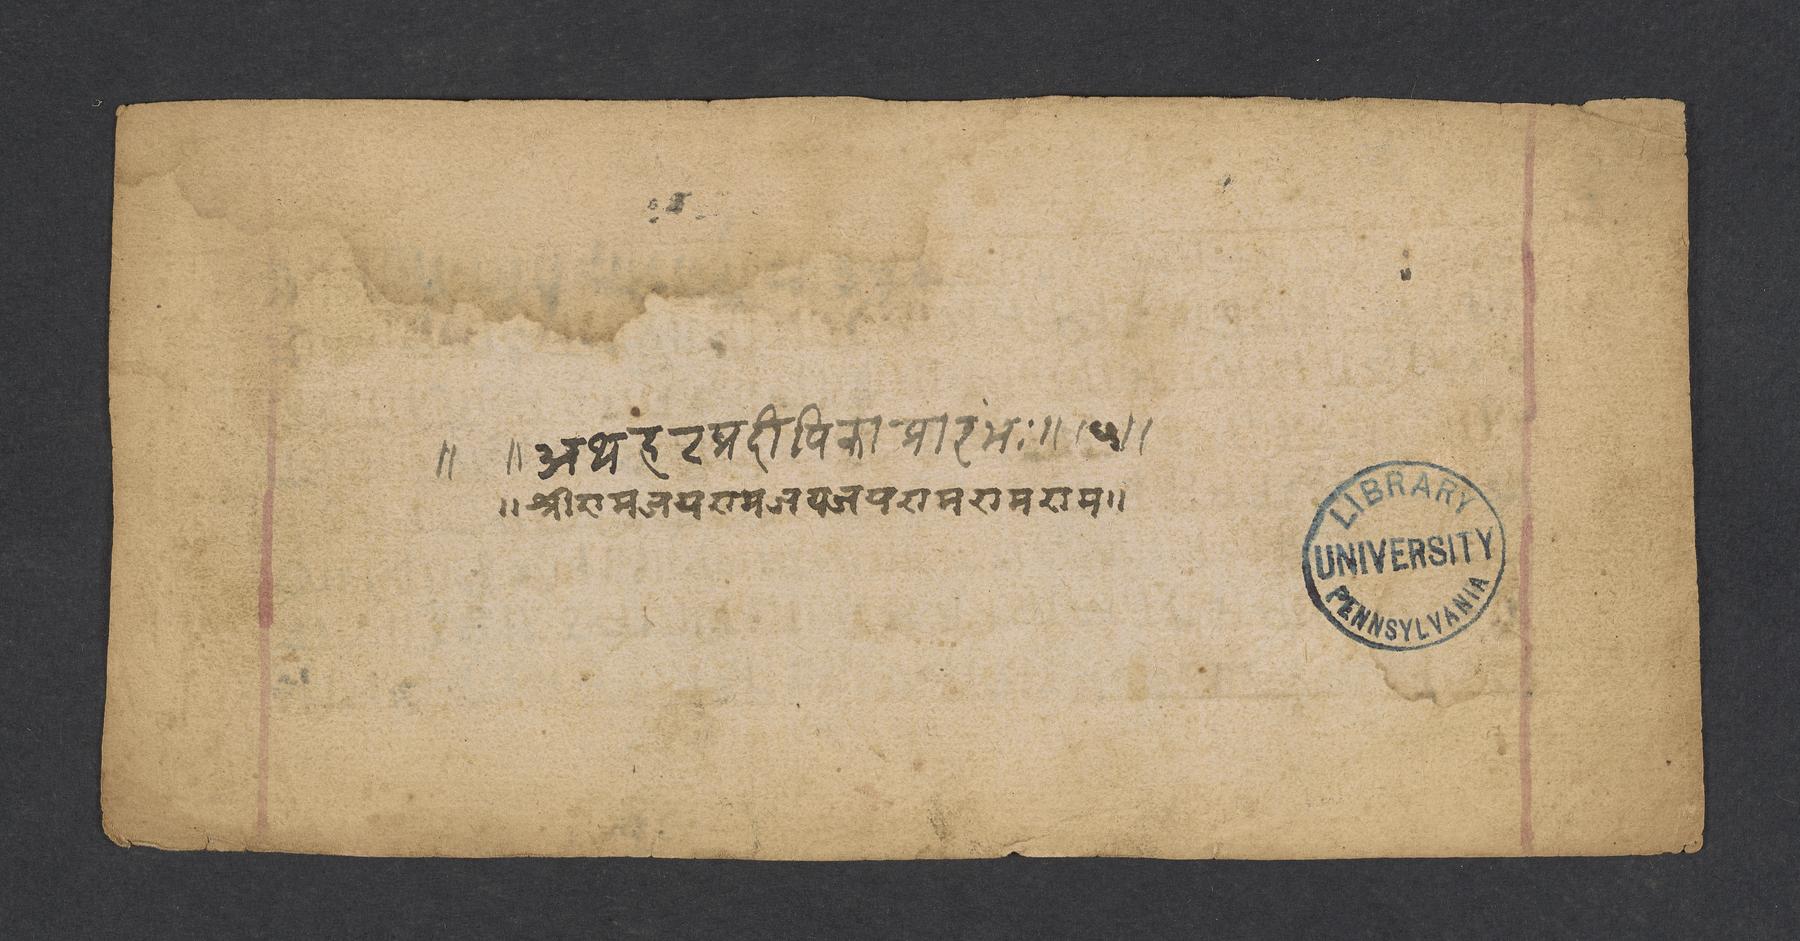 ॥ ॥ अथ हटप्रदीपिका प्रारंभः ॥ ॥५॥
॥ श्रीरामजयरामजयजयरामरामराम ॥
LIBRARY
UNIVERSITY
PENNSYLVANIA